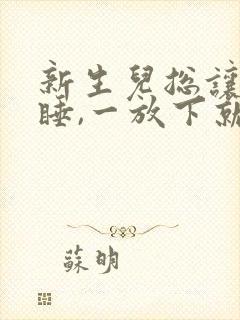 新生兒总讓
睡,一放下就
蘇明